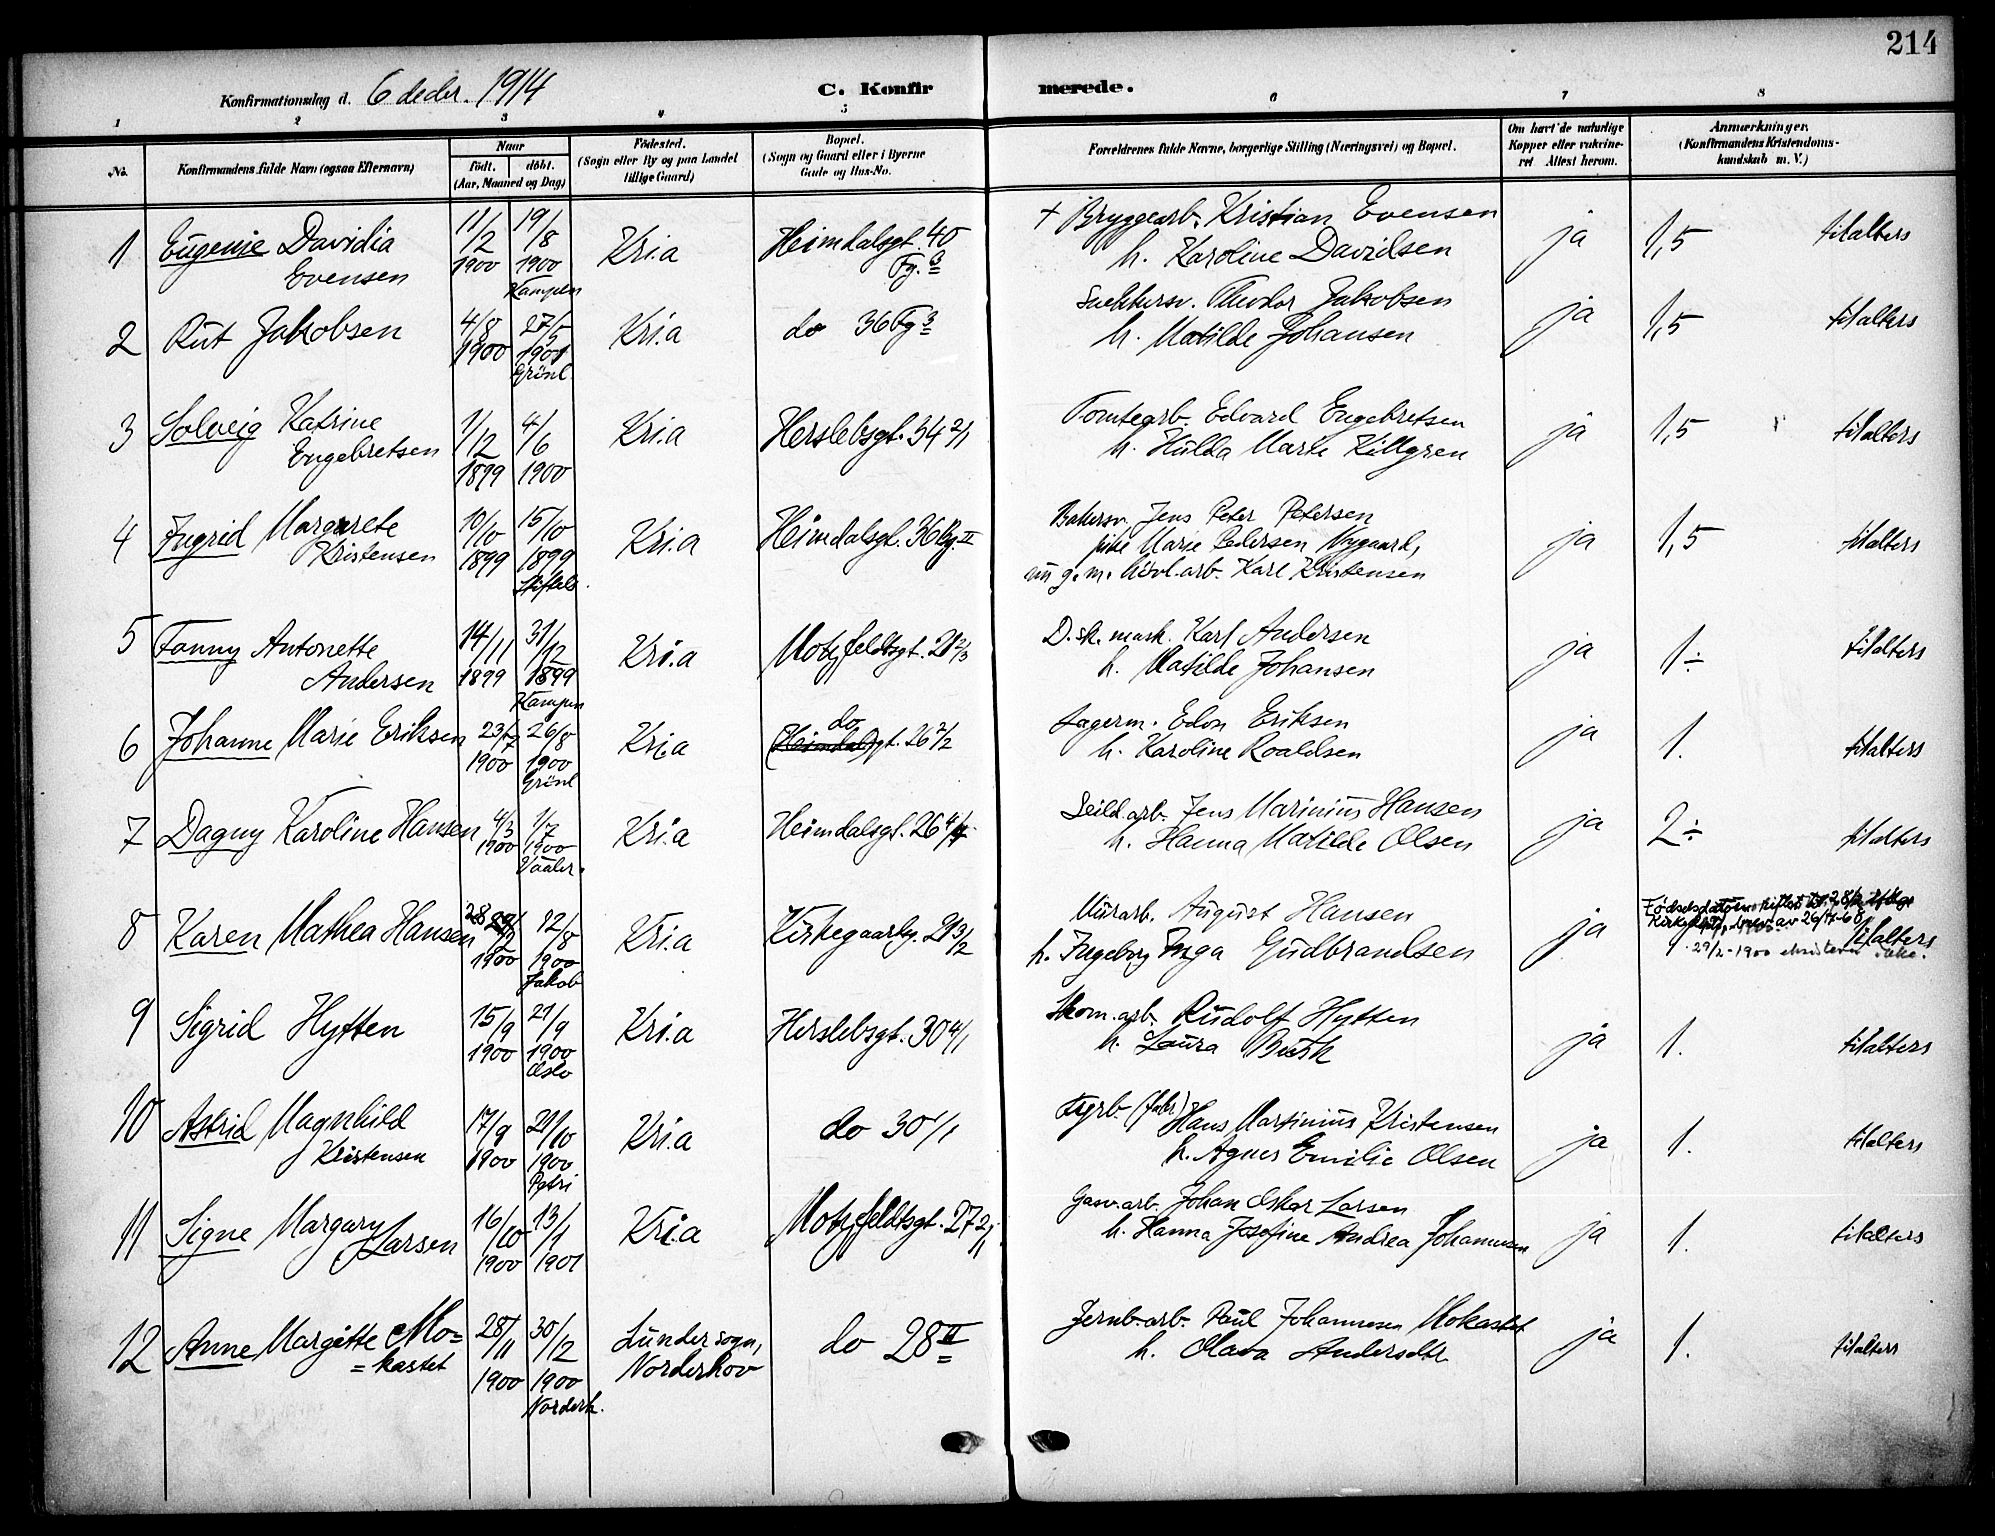 214
Konfirmationsdag d. 6 decbr. 1914
C. Konfirmerede.
1 2 3 4 5 6 7 8
No.
Konfirmandens fulde Navn (ogsaa Efternavn)
Naar
födt. döbt.
(Aar, Maaned og Dag)
Födested.
(Sogn eller By og paa Landet
tillige Gaard)
Bopæl.
(Sogn og Gaard eller i Byerne
Gade og Hus-No.
Forældrenes fulde Navne, borgerlige Stilling (Næringsvei) og Bopæl.
Om havt de naturlige
Kopper eller vakcine-
ret Attest herom.
Anmærkninger.
(Konfirmandens Kristendoms-
kundskab m. V.)
1 Eugenie Davidia
Evensen
11/2 1900
19/8 1900
Kampen
Kri.a
Heimdalsgt. 40
Fg. 3
+ Bryggearb. Kristian Evensen
h. Karoline Davidsen
ja
1,5
til alters
2 Rut Jakobsen
4/8 1900
27/5 1901
Grönl.
Kri.a
do 36 Fg 3
Theodor Jakobsen
h. Matilde Johansen
ja
1,5
til alters
3 Solveig Katrine
Engebretsen
1/12 1899
4/6 1900
Kri.a
Herslebsgt. 34 2/1
Tomtearb. Edvard Engebretsen
h. Hulda Marie Killgren
ja
1,5
til alters
4 Ingrid Margrete
Kristensen
10/10 1899
15/10 1899
Kri.a
Heimdalsgt. 36 Bg. II
Bakersv. Jens Peter Petersen
pike Marie Pedersen Nygaard,
nu g. m. hövl.arb. Karl Kristensen
ja
1,5
til alters
5 Fanny Antonette
Andersen
14/11 1899
31/12 1899
Kampen
Kri.a
Motzfeldtsgt. 21 2/3
D.sk. mask. Karl Andersen
h. Matilde Johansen
ja
1÷
til alters
6 Johanne Marie Eriksen
23/7 1900
26/8 1900
Grönl
Kri.a
do
Heimdalsgt. 26 2/2
Lagerm. Edon Eriksen
h. Karoline Roaldsen
ja
1.
til alters
7 Dagny Karoline Hansen
4/3 1900
1/7 1900
Vaaler.
Kri.a
Heimdalsgt. 26 4/4
Seild.arb. Jens Marinius Hansen
h. Hanna Matilde Olsen
ja
2÷
til alters
8 Karen Mathea Hansen
28
1900
12/8 1900
Jakob
Kri.a
Kirkegaardsg. 21 3/2
Murarb. August Hansen
h. Ingeborg Inga Gudbrandsen
ja
Födselsdatum rettet til 28/2 ifölge
av 26/4-68
29/2-1900 eksisterer ikke.
til alters
9 Sigrid Hytten
15/9 1900
21/9 1900
Oslo
Kri.a
Herslebsgt. 30 4/1
Skom.arb. Rudolf Hytten
h. Laura Busk
ja
1.
til alters
10 Astrid Magnhild
Kristensen
17/9 1900
21/10 1900
Petri
Kri.a
do 30 1/1
Fyrb. (fabr)
Hans Martinius Kristensen
h. Agnes Emilie Olsen
ja
1.
til alters
11 Signe Margary
Larsen
16/10 1900
13/1 1901
Kri.a
Motzfeldtsgt. 27 2/11
Gasv.arb. Johan Oskar Larsen
h. Hanna Josefine Andrea Johannesen
ja
1.
til alters
12 Anne Margitte Mo=
=kastet
28/11 1900
30/12 1900
Norderh.
Lunder sogn,
Norderhov
do 28 II
Jernb.arb. Paul Johannesen Mokastet
h. Olava Andersdtr
ja
1.
til alters